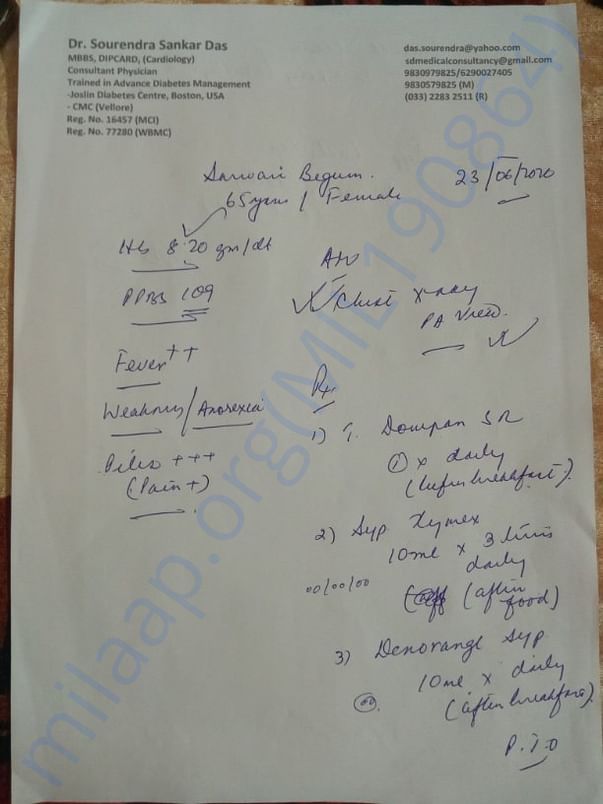 Dr. Sourendra Sankar Das
MBBS, DIPCARD, (Cardiology)
Consultant Physician
Trained in Advance Diabetes Management
-Joslin Diabetes Centre, Boston, USA
- CMC (Vellore)
Reg. No. 16457 (MCI)
Reg. No. 77280 (WBMC)
das.sourendra@yahoo.com
sdmedicalconsultancy@gmail.com
9830979825/6290027405
9830579825 (M)
(033) 2283 2511 (R)
Sarwari Begum.
23/06/2020
65 years / Female
Hb 8.20 gm/dl
PPBS 109
Fever ++
Weakness/Anorexia
Piles +++
(Pain +)
Adv
Chest X-ray
PA View.
Rx
1) T. Dompan SR
① x daily
(before breakfast).
2) Syp Zymex
10ml x 3 times
daily
00/00/00
(after food)
3) Denorange Syp
10ml x daily
00.
(after breakfast).
P.T.O
milaap.org(MIL190864)